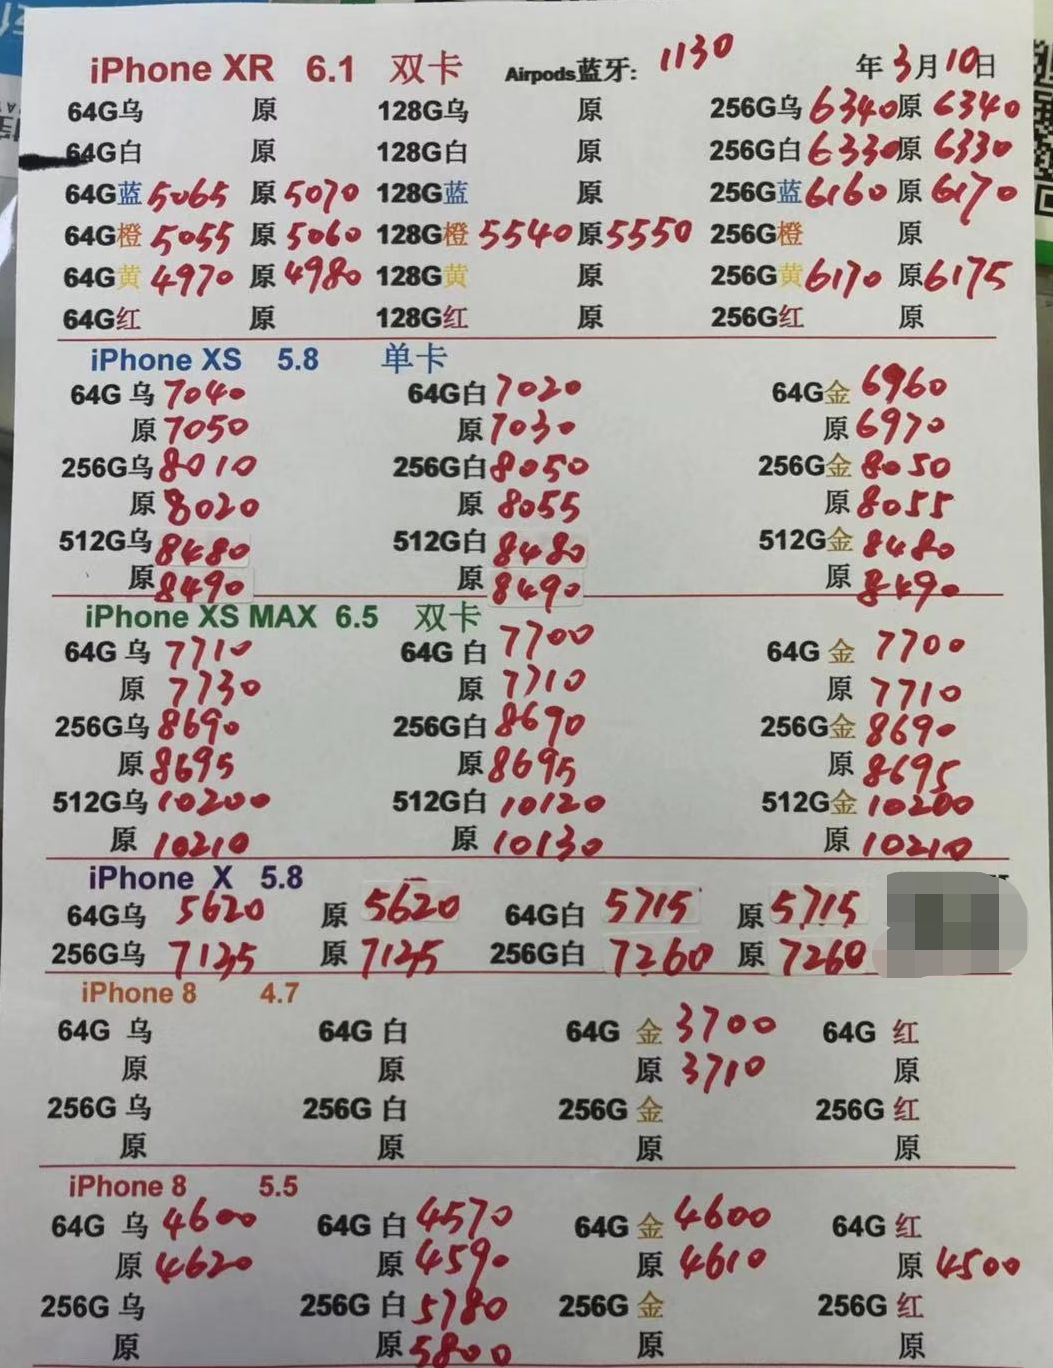 iPhone XR 6.1 双卡 Airpods蓝牙: 1130 年3月10日
64G乌 原 128G乌 原 256G乌 6340 原 6340
64G白 原 128G白 原 256G白 6330 原 6330
64G蓝 5065 原 5070 128G蓝 原 256G蓝 6160 原 6170
64G橙 5055 原 5060 128G橙 5540 原 5550 256G橙 原
64G黄 4970 原 4980 128G黄 原 256G黄 6170 原 6175
64G红 原 128G红 原 256G红 原
iPhone XS 5.8 单卡
64G 乌 7040 64G白 7020 64G金 6960
原 7050 原 7030 原 6970
256G乌 8010 256G白 8050 256G金 8050
原 8020 原 8055 原 8055
512G乌 8480 512G白 8480 512G金 8480
原 8490 原 8490 原 8490
iPhone XS MAX 6.5 双卡
64G 乌 7710 64G 白 7700 64G 金 7700
原 7730 原 7710 原 7710
256G乌 8690 256G白 8690 256G金 8690
原 8695 原 8695 原 8695
512G乌 10200 512G白 10120 512G金 10200
原 10210 原 10130 原 10210
iPhone X 5.8
64G乌 5620 原 5620 64G白 5715 原 5715
256G乌 7125 原 7125 256G白 7260 原 7260
iPhone 8 4.7
64G 乌 64G 白 64G 金 3700 64G 红
原 原 原 3710 原
256G 乌 256G 白 256G 金 256G 红
原 原 原 原
iPhone 8 5.5
64G 乌 4600 64G 白 4570 64G 金 4600 64G 红
原 4620 原 4590 原 4610 原 4500
256G 乌 256G 白 5780 256G 金 256G 红
原 原 5800 原 原